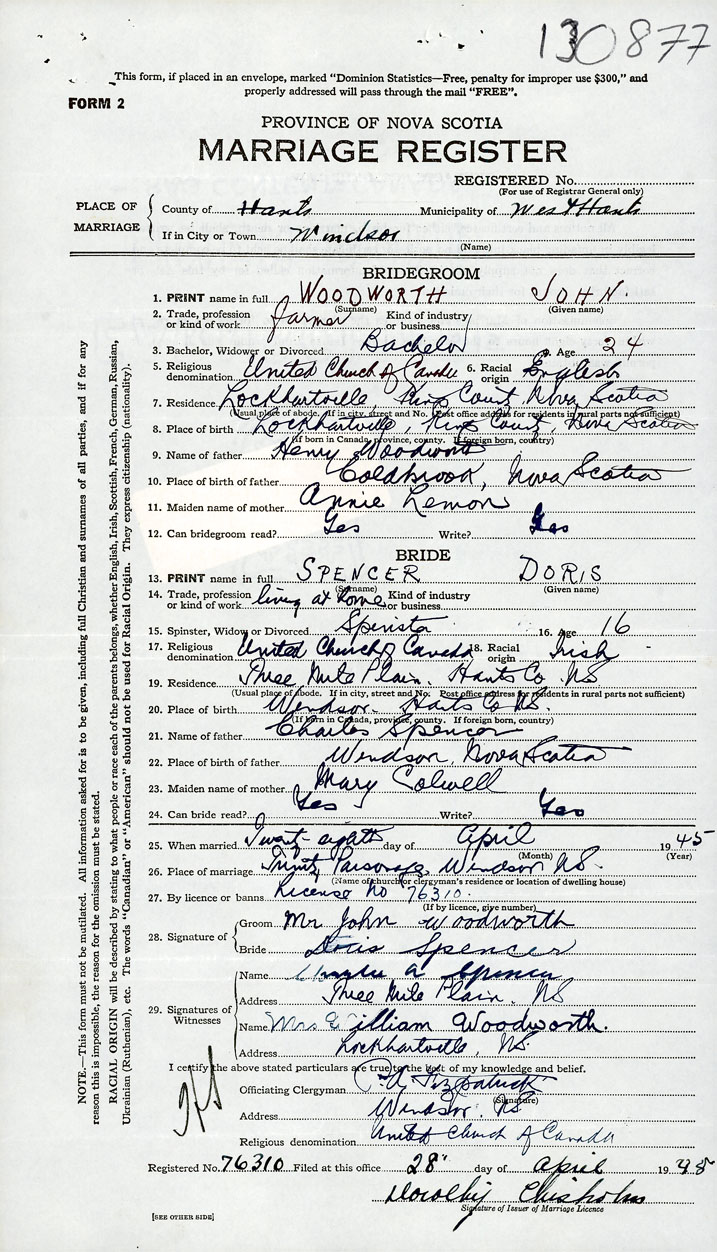 130877
This form, if placed in an envelope, marked "Dominion Statistics—Free, penalty for improper use $300," and
properly addressed will pass through the mail "FREE".
FORM 2
PROVINCE OF NOVA SCOTIA
MARRIAGE REGISTER
REGISTERED No.
(For use of Registrar General only)
PLACE OF MARRIAGE
County of Hants Municipality of West Hants
If in City or Town Windsor
(Name)
BRIDEGROOM
1. PRINT name in full WOODWORTH JOHN.
(Surname) (Given name)
2. Trade, profession or kind of work farmer Kind of industry or business
3. Bachelor, Widower or Divorced Bachelor Age 24
5. Religious denomination United Church of Canada 6. Racial origin English
7. Residence Lockhartville, King Court, Nova Scotia
(Usual place of abode. If in city, street and No. Post office address for residents in rural parts not sufficient)
8. Place of birth Lockhartville, King Court, Nova Scotia
(If born in Canada, province, county. If foreign born, country)
9. Name of father Henry Woodworth
10. Place of birth of father Coldbrook, Nova Scotia
11. Maiden name of mother Annie Lemon
12. Can bridegroom read? Yes Write? Yes
BRIDE
13. PRINT name in full SPENCER DORIS
(Surname) (Given name)
14. Trade, profession or kind of work living at home Kind of industry or business
15. Spinster, Widow or Divorced Spinster 16. Age 16
17. Religious denomination United Church of Canada 18. Racial origin Irish
19. Residence Three Mile Plain. Hants Co. NS
(Usual place of abode. If in city, street and No. Post office address for residents in rural parts not sufficient)
20. Place of birth Windsor. Hants Co NS.
(If born in Canada, province, county. If foreign born, country)
21. Name of father Charles Spencer
22. Place of birth of father Windsor, Nova Scotia
23. Maiden name of mother Mary Colwell
24. Can bride read? Yes Write? Yes
25. When married Twenty-eighth day of April 1945
(Month) (Year)
26. Place of marriage Trinity Parsonage Windsor NS.
(Name of church or clergyman's residence or location of dwelling house)
27. By licence or banns License No 76310.
(If by licence, give number)
28. Signature of
Groom Mr John Woodworth
Bride Doris Spencer
29. Signatures of Witnesses
Name a Spencer
Address Three Mile Plain. NS
Name Mrs William Woodworth.
Address Lockhartville, NS.
I certify the above stated particulars are true to the best of my knowledge and belief.
Officiating Clergyman Fitzpatrick
(Signature)
Address Windsor. NS
Religious denomination United Church of Canada
Registered No. 76310 Filed at this office 28" day of April 1945
Dorothy Chisholm
Signature of Issuer of Marriage Licence
[SEE OTHER SIDE]
NOTE.—This form must not be mutilated. All information asked for is to be given, including full Christian and surnames of all parties, and if for any
reason this is impossible, the reason for the omission must be stated.
RACIAL ORIGIN will be described by stating to what people or race each of the parents belongs, whether English, Irish, Scottish, French, German, Russian,
Ukrainian (Ruthenian), etc. The words "Canadian" or "American" should not be used for Racial Origin. They express citizenship (nationality).